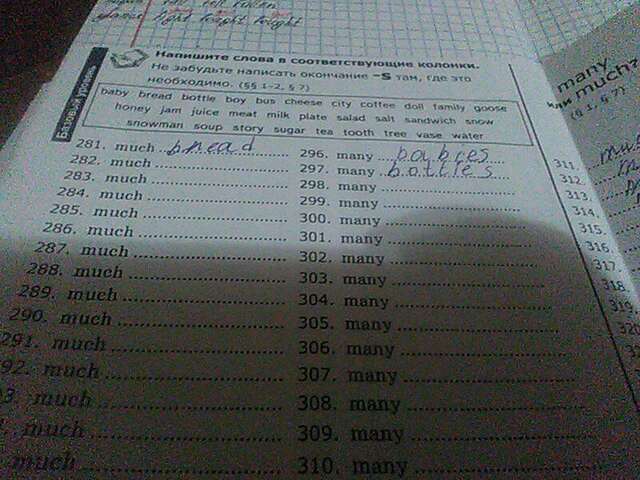 fight fought fought
Напишите слова в соответствующие колонки.
Не забудьте написать окончание –S там, где это
необходимо. (§§ 1–2, § 7)
Базовый уровень
baby bread bottle boy bus cheese city coffee doll family goose
honey jam juice meat milk plate salad salt sandwich snow
snowman soup story sugar tea tooth tree vase water
281. much bread 296. many babies
282. much 297. many bottles
283. much 298. many
284. much 299. many
285. much 300. many
286. much 301. many
287. much 302. many
288. much 303. many
289. much 304. many
290. much 305. many
291. much 306. many
92. much 307. many
3. much 308. many
much 309. many
much 310. many
many
или much?
(§ 1, § 7)
311.
312.
313.
314.
315.
316.
317.
318.
319.
320